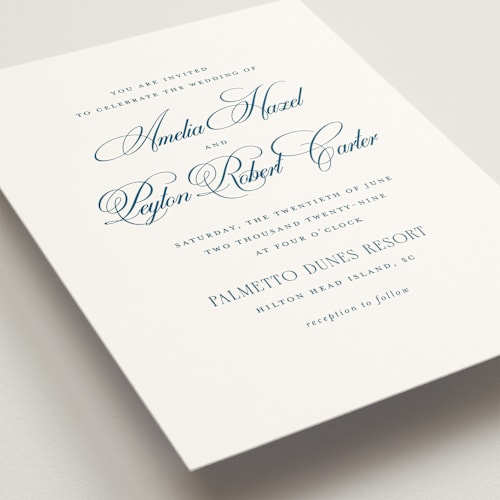 YOU ARE INVITED
TO CELEBRATE THE WEDDING OF
Amelia Hazel
AND
Peyton Robert Carter
SATURDAY, THE TWENTIETH OF JUNE
TWO THOUSAND TWENTY-NINE
AT FOUR O'CLOCK
PALMETTO DUNES RESORT
HILTON HEAD ISLAND, SC
reception to follow